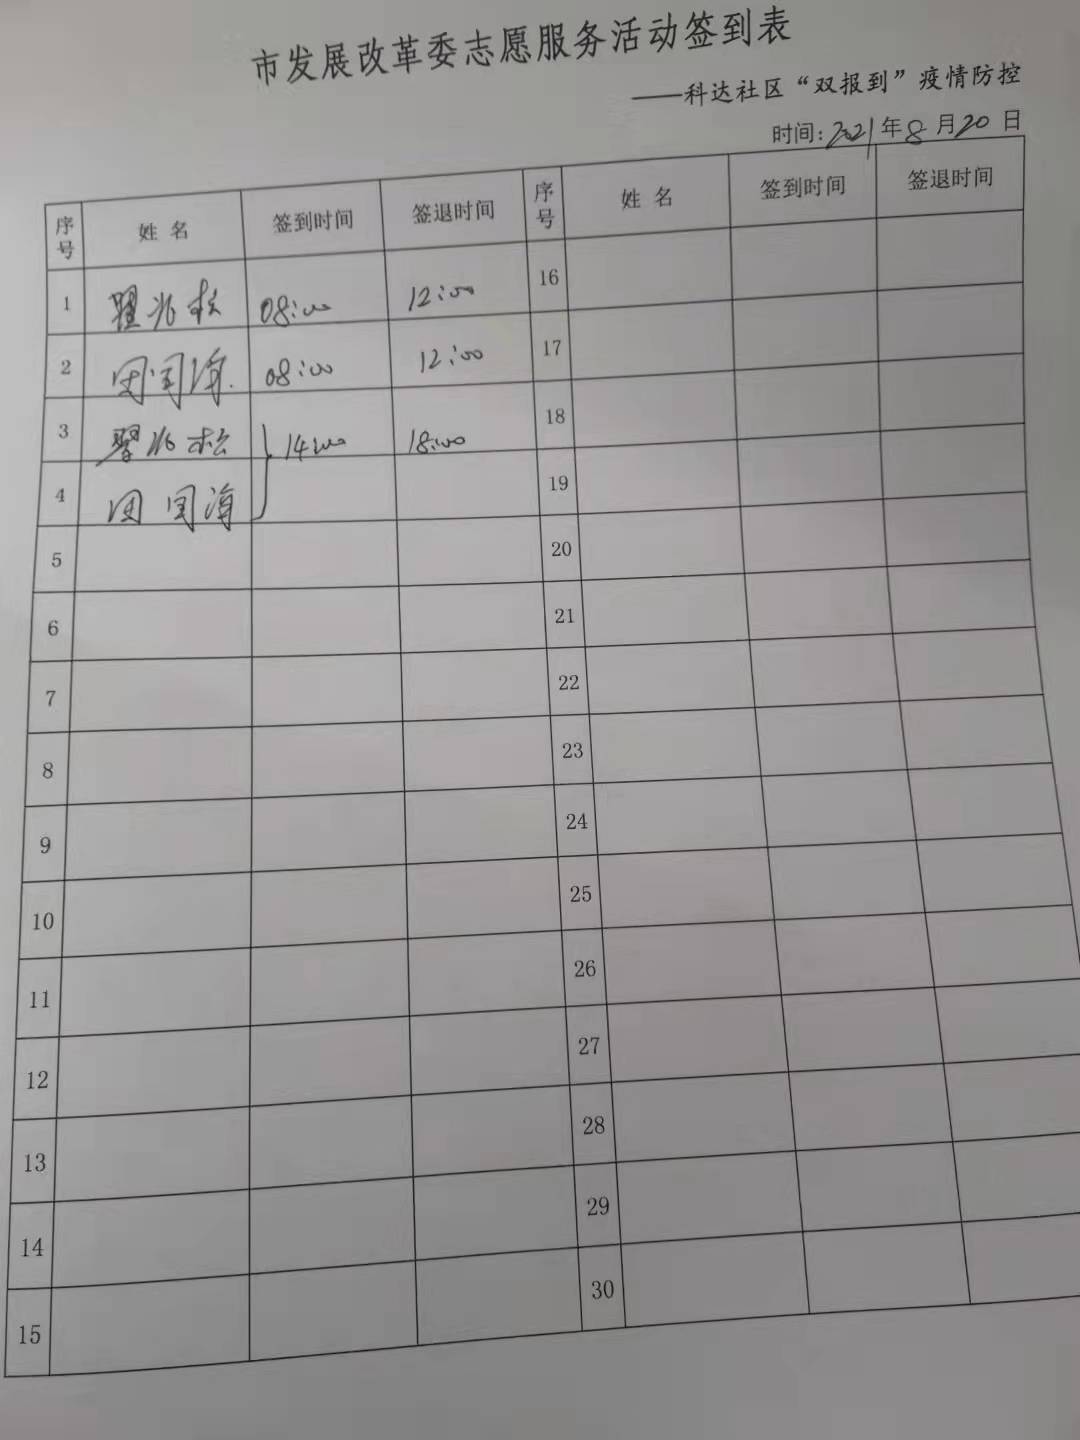 市发展改革委志愿服务活动签到表
——科达社区“双报到”疫情防控
时间:2021年8月20日
序号 姓名 签到时间 签退时间 序号 姓名 签到时间 签退时间
1 翟兆松 08:00 12:00 16
2 08:00 12:00 17
3 翟兆松 14:00 18:00 18
4 19
5 20
6 21
7 22
8 23
9 24
10 25
11 26
12 27
13 28
14 29
15 30